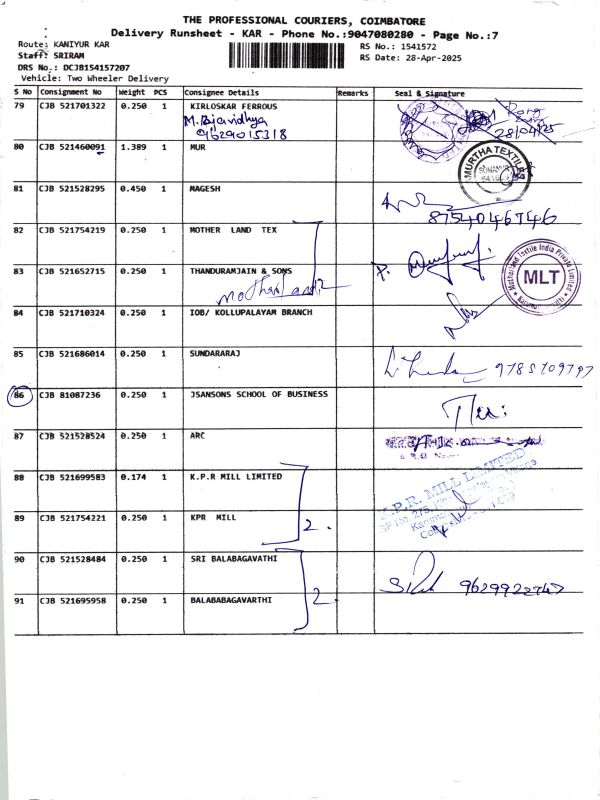 THE PROFESSIONAL COURIERS, COIMBATORE
Delivery Runsheet - KAR - Phone No.:9047080280 - Page No.:7
Route: KANIYUR KAR
Staff: SRIRAM
DRS No.: DCJB154157207
Vehicle: Two Wheeler Delivery
RS No.: 1541572
RS Date: 28-Apr-2025
S No Consignment No Weight PCS Consignee Details Remarks Seal & Signature
79 CJB 521701322 0.250 1 KIRLOSKAR FERROUS
9629015318
28/04/25
80 CJB 521460091 1.389 1 MUR
MURTHA TEXTILES
81 CJB 521528295 0.450 1 MAGESH
8754046746
82 CJB 521754219 0.250 1 MOTHER LAND TEX
83 CJB 521652715 0.250 1 THANDURAMJAIN & SONS
Motherland
Motherland Textile India Private Limited
MLT
84 CJB 521710324 0.250 1 IOB/ KOLLUPALAYAM BRANCH
85 CJB 521686014 0.250 1 SUNDARARAJ
9785109797
86 CJB 81087236 0.250 1 JSANSONS SCHOOL OF BUSINESS
87 CJB 521528524 0.250 1 ARC
88 CJB 521699583 0.174 1 K.P.R MILL LIMITED
K.P.R. MILL LIMITED
89 CJB 521754221 0.250 1 KPR MILL
2.
90 CJB 521528484 0.250 1 SRI BALABAGAVATHI
9629922747
91 CJB 521695958 0.250 1 BALABABAGAVARTHI
2.